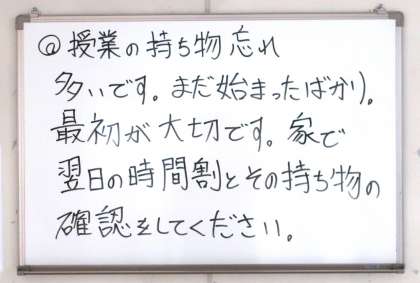 @授業の持ち物忘れ
多いです。まだ始まったばかり。
最初が大切です。家で
翌日の時間割とその持ち物の
確認をしてください。